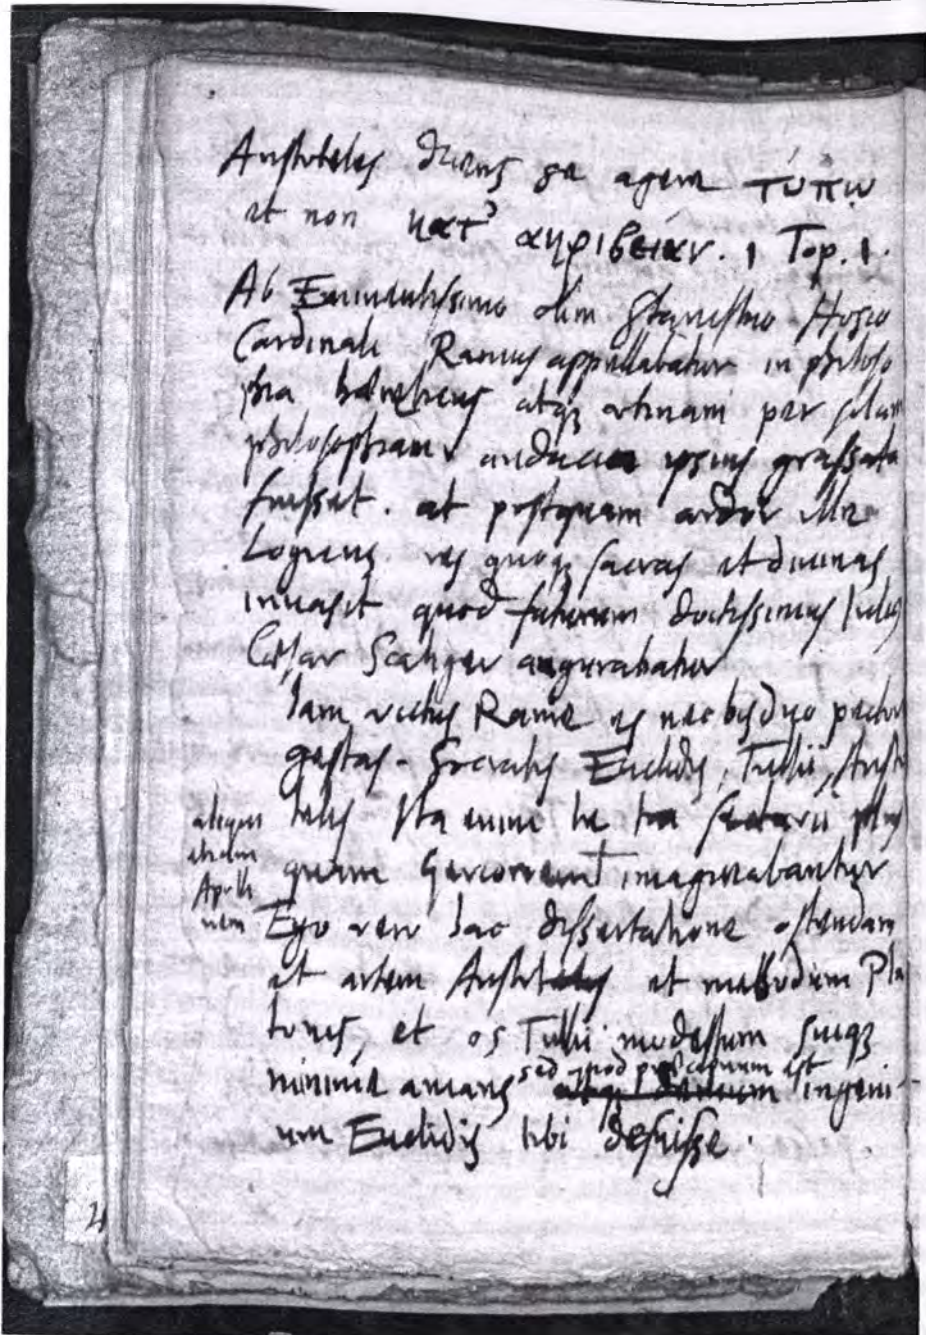 Aristoteles dicens se agere τύπῳ
et non κατ' ακριβειάν. 1 Top. 1.
Ab Eminentissimo olim Stanislao Hosio
Cardinali Ramus appellabatur in philoso
phia haereticus atqz utinam per solam
philosophiam audacia ipsius grassata
fuisset. at postquam ardor ille
Logicus res quoqz sacras et divinas
invasit quod futurum doctissimus Iulius
Caesar Scaliger augurabatur
Iam Rame es nec bis duo
gestas. Socratis Euclidis, Tullii, Aristo
telis Ita enim te tui
quam imaginabantur
aliquem
etiam
Ego vero hac dissertatione ostendam
et artem Aristotelis et methodum Pla
tonis, et os Tullii modestum suiqz
minime amans sed quod praecipuum est ingeni
um Euclidis tibi defuisse.